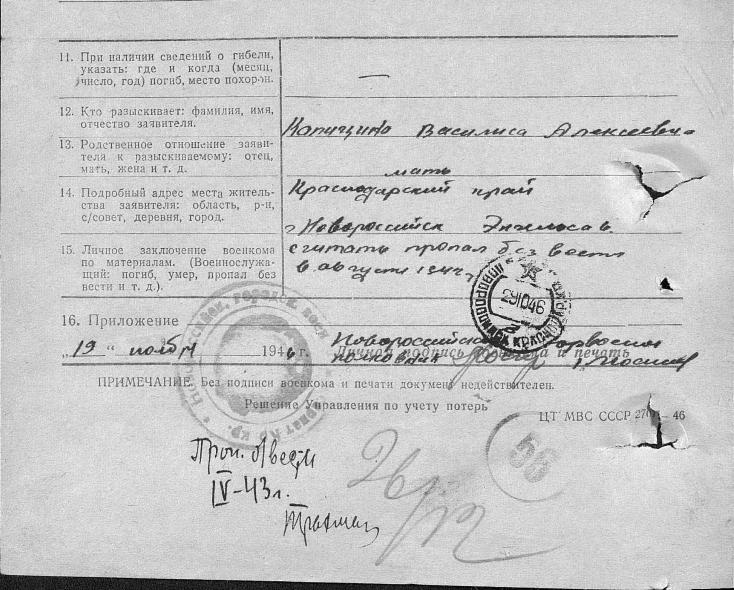 11. При наличии сведений о гибели,
указать: где и когда (месяц,
число, год) погиб, место похорон.
—
12. Кто разыскивает: фамилия, имя,
отчество заявителя.
Василиса Алексеевна
13. Родственное отношение заяви-
теля к разыскиваемому: отец,
мать, жена и т. д.
мать
14. Подробный адрес места житель-
ства заявителя: область, р-н,
с/совет, деревня, город.
Краснодарский край
г Новороссийск Энгельса
15. Личное заключение военкома
по материалам. (Военнослужа-
щий: погиб, умер, пропал без
вести и т. д.).
считать пропал без вести
в августе
16. Приложение
Новороссийский горвоенком
„19“ ноября 1946 г. Личная подпись военкома и печать
полковник
НОВОРОССИЙСК КРАСНОД
29 10 46
ПРИМЕЧАНИЕ: Без подписи военкома и печати документ недействителен.
Решение Управления по учету потерь
ЦТ МВС СССР – 46
Проп. б/вести
IV-43г.
56